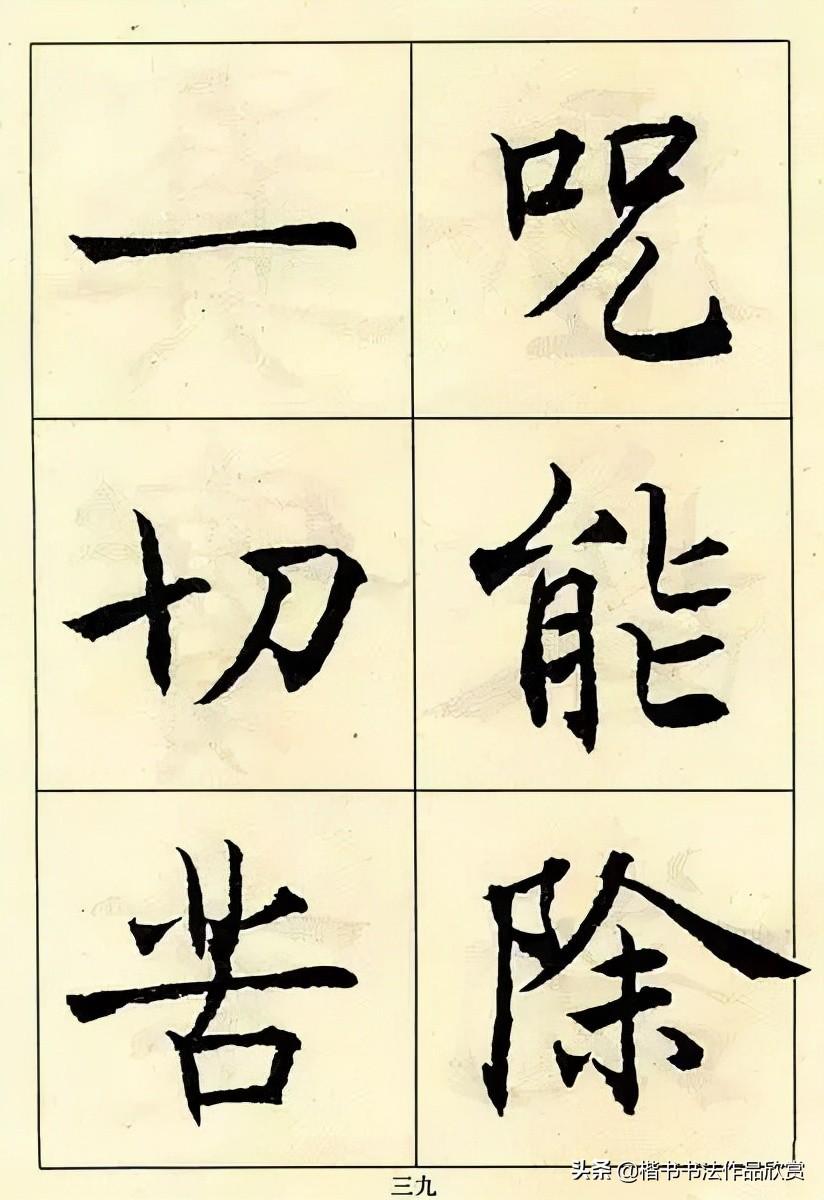 咒能除
一切苦
三九
头条 @楷书书法作品欣赏